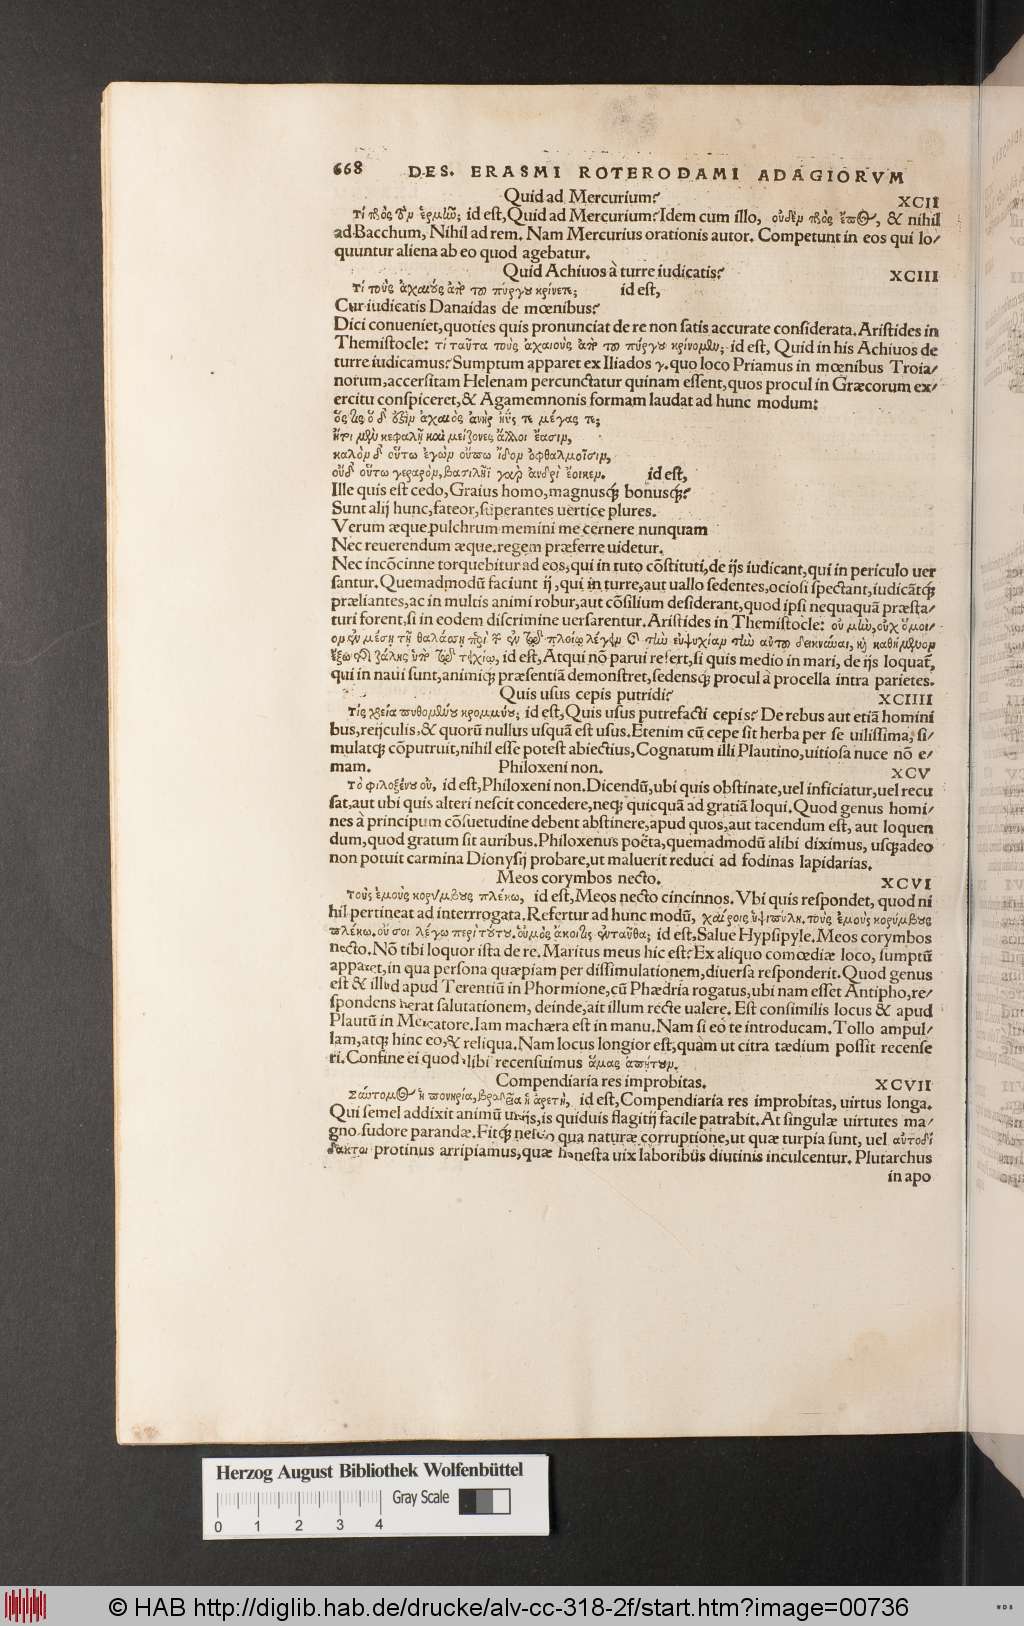 668 DES. ERASMI ROTERODAMI ADAGIORVM
Quid ad Mercurium? XCII
Τί πρὸς τὸν ἑρμῶ; id eſt, Quid ad Mercurium? Idem cum illo, οὐδὲν πρὸς ἔπος, & nihil
ad Bacchum, Nihil ad rem. Nam Mercurius orationis autor. Competunt in eos qui lo/
quuntur aliena ab eo quod agebatur.
Quid Achiuos à turre iudicatis? XCIII
Τί τοὺς ἀχαιοὺς ἀπὸ τοῦ πύργου κρίνετε; id eſt,
Cur iudicatis Danaidas de mœnibus?
Dici conueniet, quoties quis pronunciat de re non ſatis accurate conſiderata. Ariſtides in
Themiſtocle: τί ταῦτα τοὺς ἀχαιοὺς ἀπὸ τοῦ πύργου κρίνομεν; id eſt, Quid in his Achiuos de
turre iudicamus? Sumptum apparet ex Iliados γ. quo loco Priamus in mœnibus Troia/
norum, accerſitam Helenam percunctatur quinam eſſent, quos procul in Græcorum ex/
ercitu conſpiceret, & Agamemnonis formam laudat ad hunc modum:
ὅς τις ὁ δ' ὁξὶν ἀχαιὸς ἀνὴρ ἠύς τε μέγας τε;
ἤτοι μὲν κεφαλῇ καὶ μείζονες ἄλλοι ἔασιν,
καλὸν δ' οὕτω ἐγὼν οὔπω ἴδον ὀφθαλμοῖσιν,
οὐδ' οὕτω γεραρόν, βασιλῆϊ γὰρ ἀνδρὶ ἔοικεν. id eſt,
Ille quis eſt cedo, Graius homo, magnusq́; bonusq́;?
Sunt alij hunc, fateor, ſuperantes uertice plures.
Verum æque pulchrum memini me cernere nunquam
Nec reuerendum æque. regem præferre uidetur.
Nec incōcinne torquebitur ad eos, qui in tuto cōſtituti, de ijs iudicant, qui in periculo uer
ſantur. Quemadmodū faciunt ij, qui in turre, aut uallo ſedentes, ocioſi ſpectant, iudicātq́;
præliantes, ac in multis animi robur, aut cōſilium deſiderant, quod ipſi nequaquā præſta/
turi forent, ſi in eodem diſcrimine uerſarentur. Ariſtides in Themiſtocle: οὐ μὼ, οὐχ ὅμοι/
ον ἐν μέσῃ τῇ θαλάσῃ περὶ τ̃ ἐν τῷ πλοίῳ λέγειν καὶ τὼ εὐψυχίαν τὼ αὐτοῦ δεικνύναι, κὴ καθήμενον
ἔξω τῆς ζάλης ὑπὸ τῷ τειχίῳ, id eſt, Atqui nō parui refert, ſi quis medio in mari, de ijs loquat̃,
qui in naui ſunt, animiq́; præſentiā demonſtret, ſedensq́; procul à procella intra parietes.
Quis uſus cepis putridi? XCIIII
Τίς χρεία πυθομένου κρομμύου; id eſt, Quis uſus putrefacti cepis? De rebus aut etiā homini
bus, reijculis, & quorū nullus uſquā eſt uſus. Etenim cū cepe ſit herba per ſe uiliſſima, ſi/
mulatq́; cōputruit, nihil eſſe poteſt abiectius, Cognatum illi Plautino, uitioſa nuce nō e/
mam. Philoxeni non. XCV
Τὸ φιλοξένου οὔ, id eſt, Philoxeni non. Dicendū, ubi quis obſtinate, uel inficiatur, uel recu
ſat, aut ubi quis alteri neſcit concedere, neq́; quicquā ad gratiā loqui. Quod genus homi/
nes à principum cōſuetudine debent abſtinere, apud quos, aut tacendum eſt, aut loquen
dum, quod gratum ſit auribus. Philoxenus poëta, quemadmodū alibi diximus, uſq́;adeo
non potuit carmina Dionyſij probare, ut maluerit reduci ad fodinas lapidarias.
Meos corymbos necto. XCVI
Τοὺς ἐμοὺς κορύμβους πλέκω, id eſt, Meos necto cincinnos. Vbi quis reſpondet, quod ni
hil pertineat ad interrrogata. Refertur ad hunc modū, χαίροις ὑψιπύλη. τοὺς ἐμοὺς κορύμβους
πλέκω. οὔ σοι λέγω περὶ τούτου. οὑμὸς ἄκοιτις ἐνταῦθα; id eſt, Salue Hypſipyle. Meos corymbos
necto. Nō tibi loquor iſta de re. Maritus meus hic eſt? Ex aliquo comœdiæ loco, ſumptū
apparet, in qua perſona quæpiam per diſſimulationem, diuerſa reſponderit. Quod genus
eſt & illud apud Terentiū in Phormione, cū Phædria rogatus, ubi nam eſſet Antipho, re/
ſpondens herat ſalutationem, deinde, ait illum recte ualere. Eſt conſimilis locus & apud
Plautū in Mercatore. Iam machæra eſt in manu. Nam ſi eo te introducam. Tollo ampul/
lam, atq́; hinc eo, & reliqua. Nam locus longior eſt, quàm ut citra tædium poſſit recenſe
ri. Confine ei quod alibi recenſuimus ἅμας ἀπῄτουν.
Compendiaria res improbitas. XCVII
Σύντομος ἡ πονηρία, βραδεῖα ἡ ἀρετή, id eſt, Compendiaria res improbitas, uirtus longa.
Qui ſemel addixit animū uitijs, is quiduis flagitij facile patrabit. At ſingulæ uirtutes ma/
gno ſudore parandæ. Fitq́; neſcio qua naturæ corruptione, ut quæ turpia ſunt, uel αὐτοδί
δακτοι protinus arripiamus, quæ honeſta uix laboribus diutinis inculcentur. Plutarchus
in apo
Herzog August Bibliothek Wolfenbüttel
Gray Scale
0 1 2 3 4
© HAB http://diglib.hab.de/drucke/alv-cc-318-2f/start.htm?image=00736